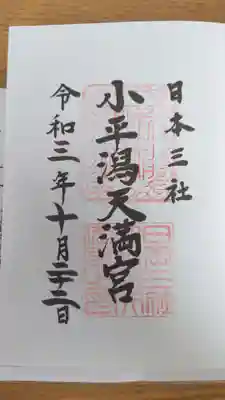 日本三社
小平潟天満宮
令和三年十月二十二日